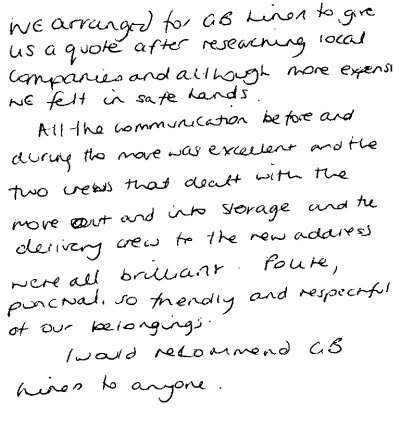 WE arranged for GB Liners to give
us a quote after researching local
companies and although more expensi
WE felt in safe hands.
All the communication before and
during the move was excellent and the
two crews that dealt with the
move out and into storage and the
delivery crew to the new address
were all brilliant. Polite,
punctual, so friendly and respectful
of our belongings.
I would recommend GB
Liners to anyone.